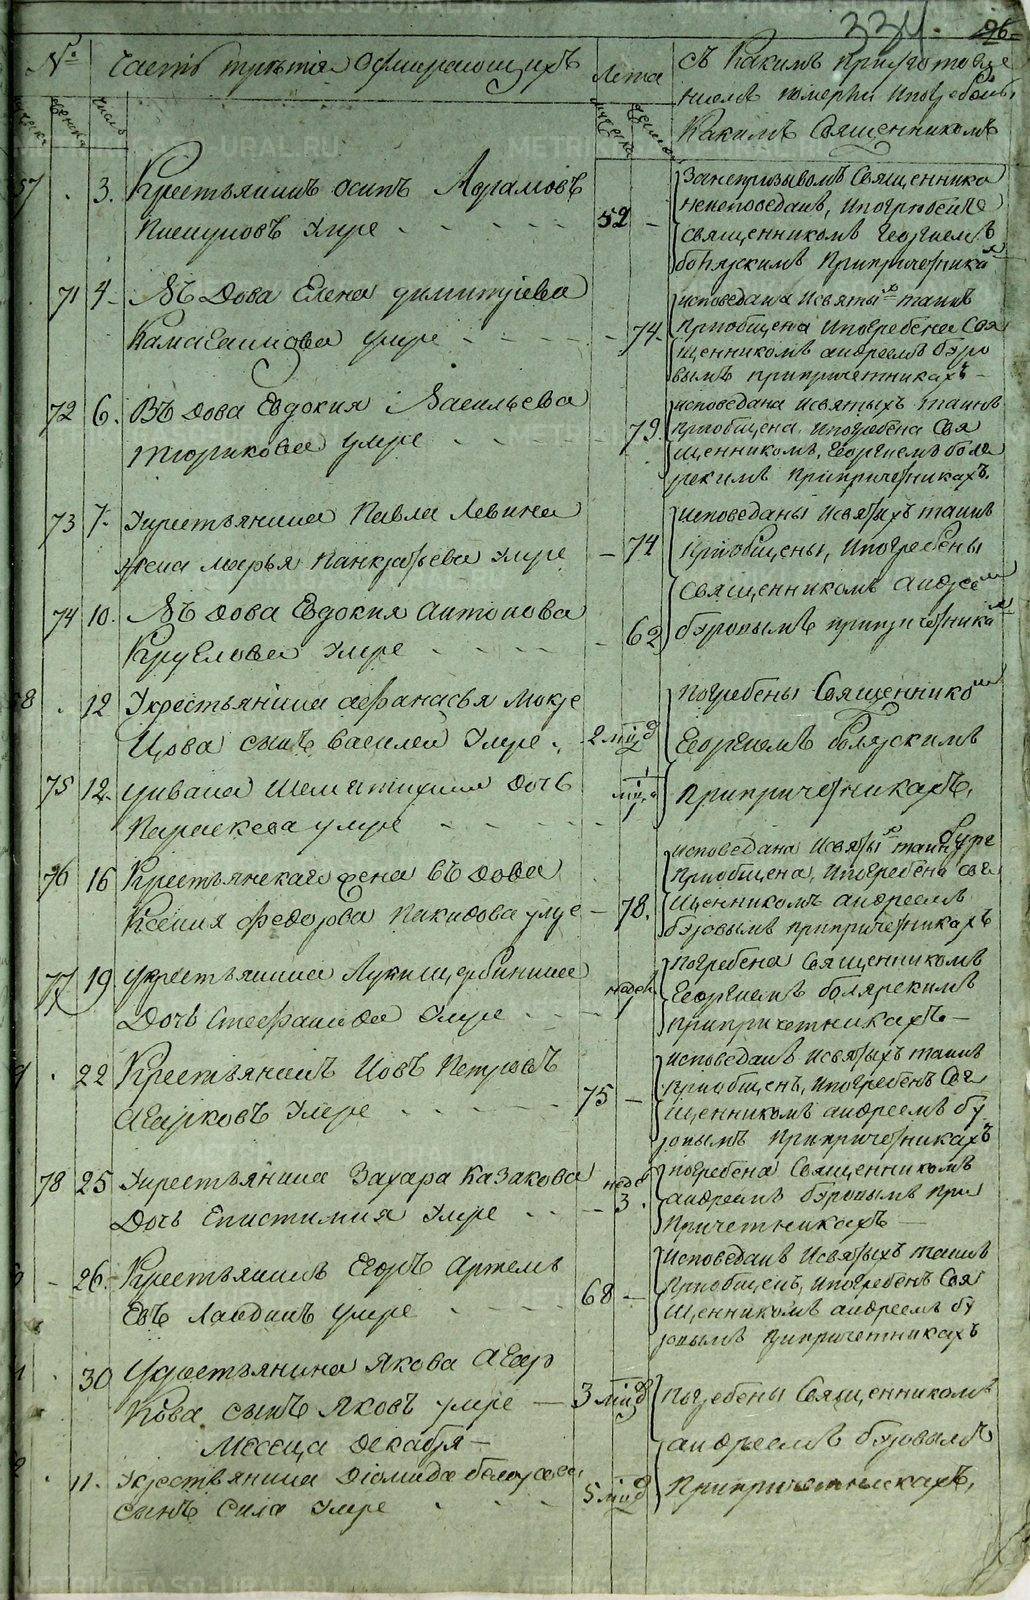 334. 96.
№ Часть третія О умирающихъ Лета съ Какимъ приуготовле
ниемъ померли и погребены
Какимъ Священникомъ
57 . 3. Крестьянинъ осипъ Абрамовъ
Умре 52 -
Занепризывомъ Священника
неисповеданъ, и погребенъ
священникомъ Георгиемъ
боярскимъ Припричетника
71 4 Въ Дова Елена димитріева
умре - 74
исповедана и святы таинъ
приобщена и погребена Свя
щенникомъ андреемъ буро
вымъ припричетникахъ
72 6. Въ Дова Евдокия Васильева
тюрикова умре 79.
исповедана и святыхъ таинъ
приобщена и погребена Свя
щенникомъ, Георгиемъ боля
рскимъ Припричетникахъ.
73 7. У крестьянина Павла Левина
жена марья Панкратьева Умре - 74
исповеданы и святыхъ таинъ
приобщены, и погребены
74 10. Въ Дова Евдокия антонова
Круглова Умре 62
священникомъ андрее
буровымъ припричетника
58 . 12 У крестьянина афанасья Мокре
цова сынъ василей Умре. 2
погребены Священнико
Георгиемъ болярскимъ
75 12. у ивана дочь
Параскева умре
Припричетникахъ.
76 16 Крестьянская жена въ Дова
Ксения Федорова умре - 78.
исповедана и святы таинъ
приобщена, и погребена свя
щенникомъ андреемъ
буровымъ припричетникахъ
77 19 у крестьянина Луки
Дочь Стефанида Умре недел
погребена Священникомъ
Георгиемъ болярскимъ
припричетникахъ
. 22 Крестьянинъ Иовъ Петровъ
Агарковъ Умре 75 -
исповеданъ и святыхъ таинъ
приобщенъ, и погребенъ Свя
щенникомъ андреемъ бу
ровымъ Припричетникахъ
78 25 У крестьянина Захара Казакова
Дочь Епистимия Умре нед 3.
погребена Священникомъ
андреемъ буровымъ при
Причетникахъ
- 26. Крестьянинъ Егоръ Артемь
евъ Ландинъ умре 68 -
исповеданъ и святыхъ таинъ
приобщенъ, и погребенъ Свя
щенникомъ андреемъ бу
ровымъ припричетникахъ
30 У крестьянина Якова Агар
кова сынъ Яковъ умре - 3
погребены Священникомъ
Месеца декабря
андреемъ буровымъ
11. У крестьянина Диомида
сынъ Сила Умре 5
Припричетникахъ.